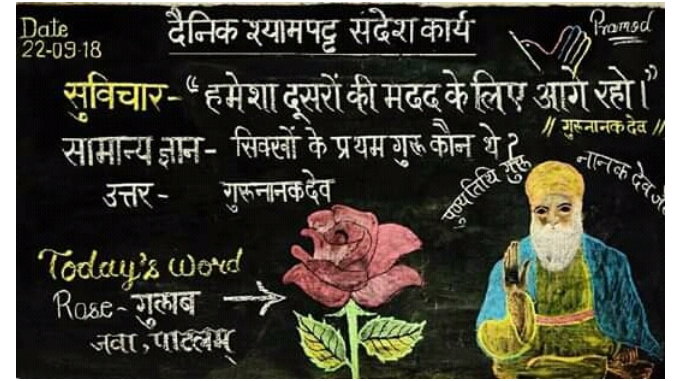 Date
22-09-18
दैनिक श्यामपट्ट संदेश कार्य
Pramod
सुविचार- “हमेशा दूसरों की मदद के लिए आगे रहो।”
// गुरुनानक देव //
सामान्य ज्ञान- सिक्खों के प्रथम गुरु कौन थे ?
उत्तर- गुरुनानकदेव
पुण्यतिथि गुरु नानक देव
Today's word
Rose- गुलाब
जवा, पाटलम्